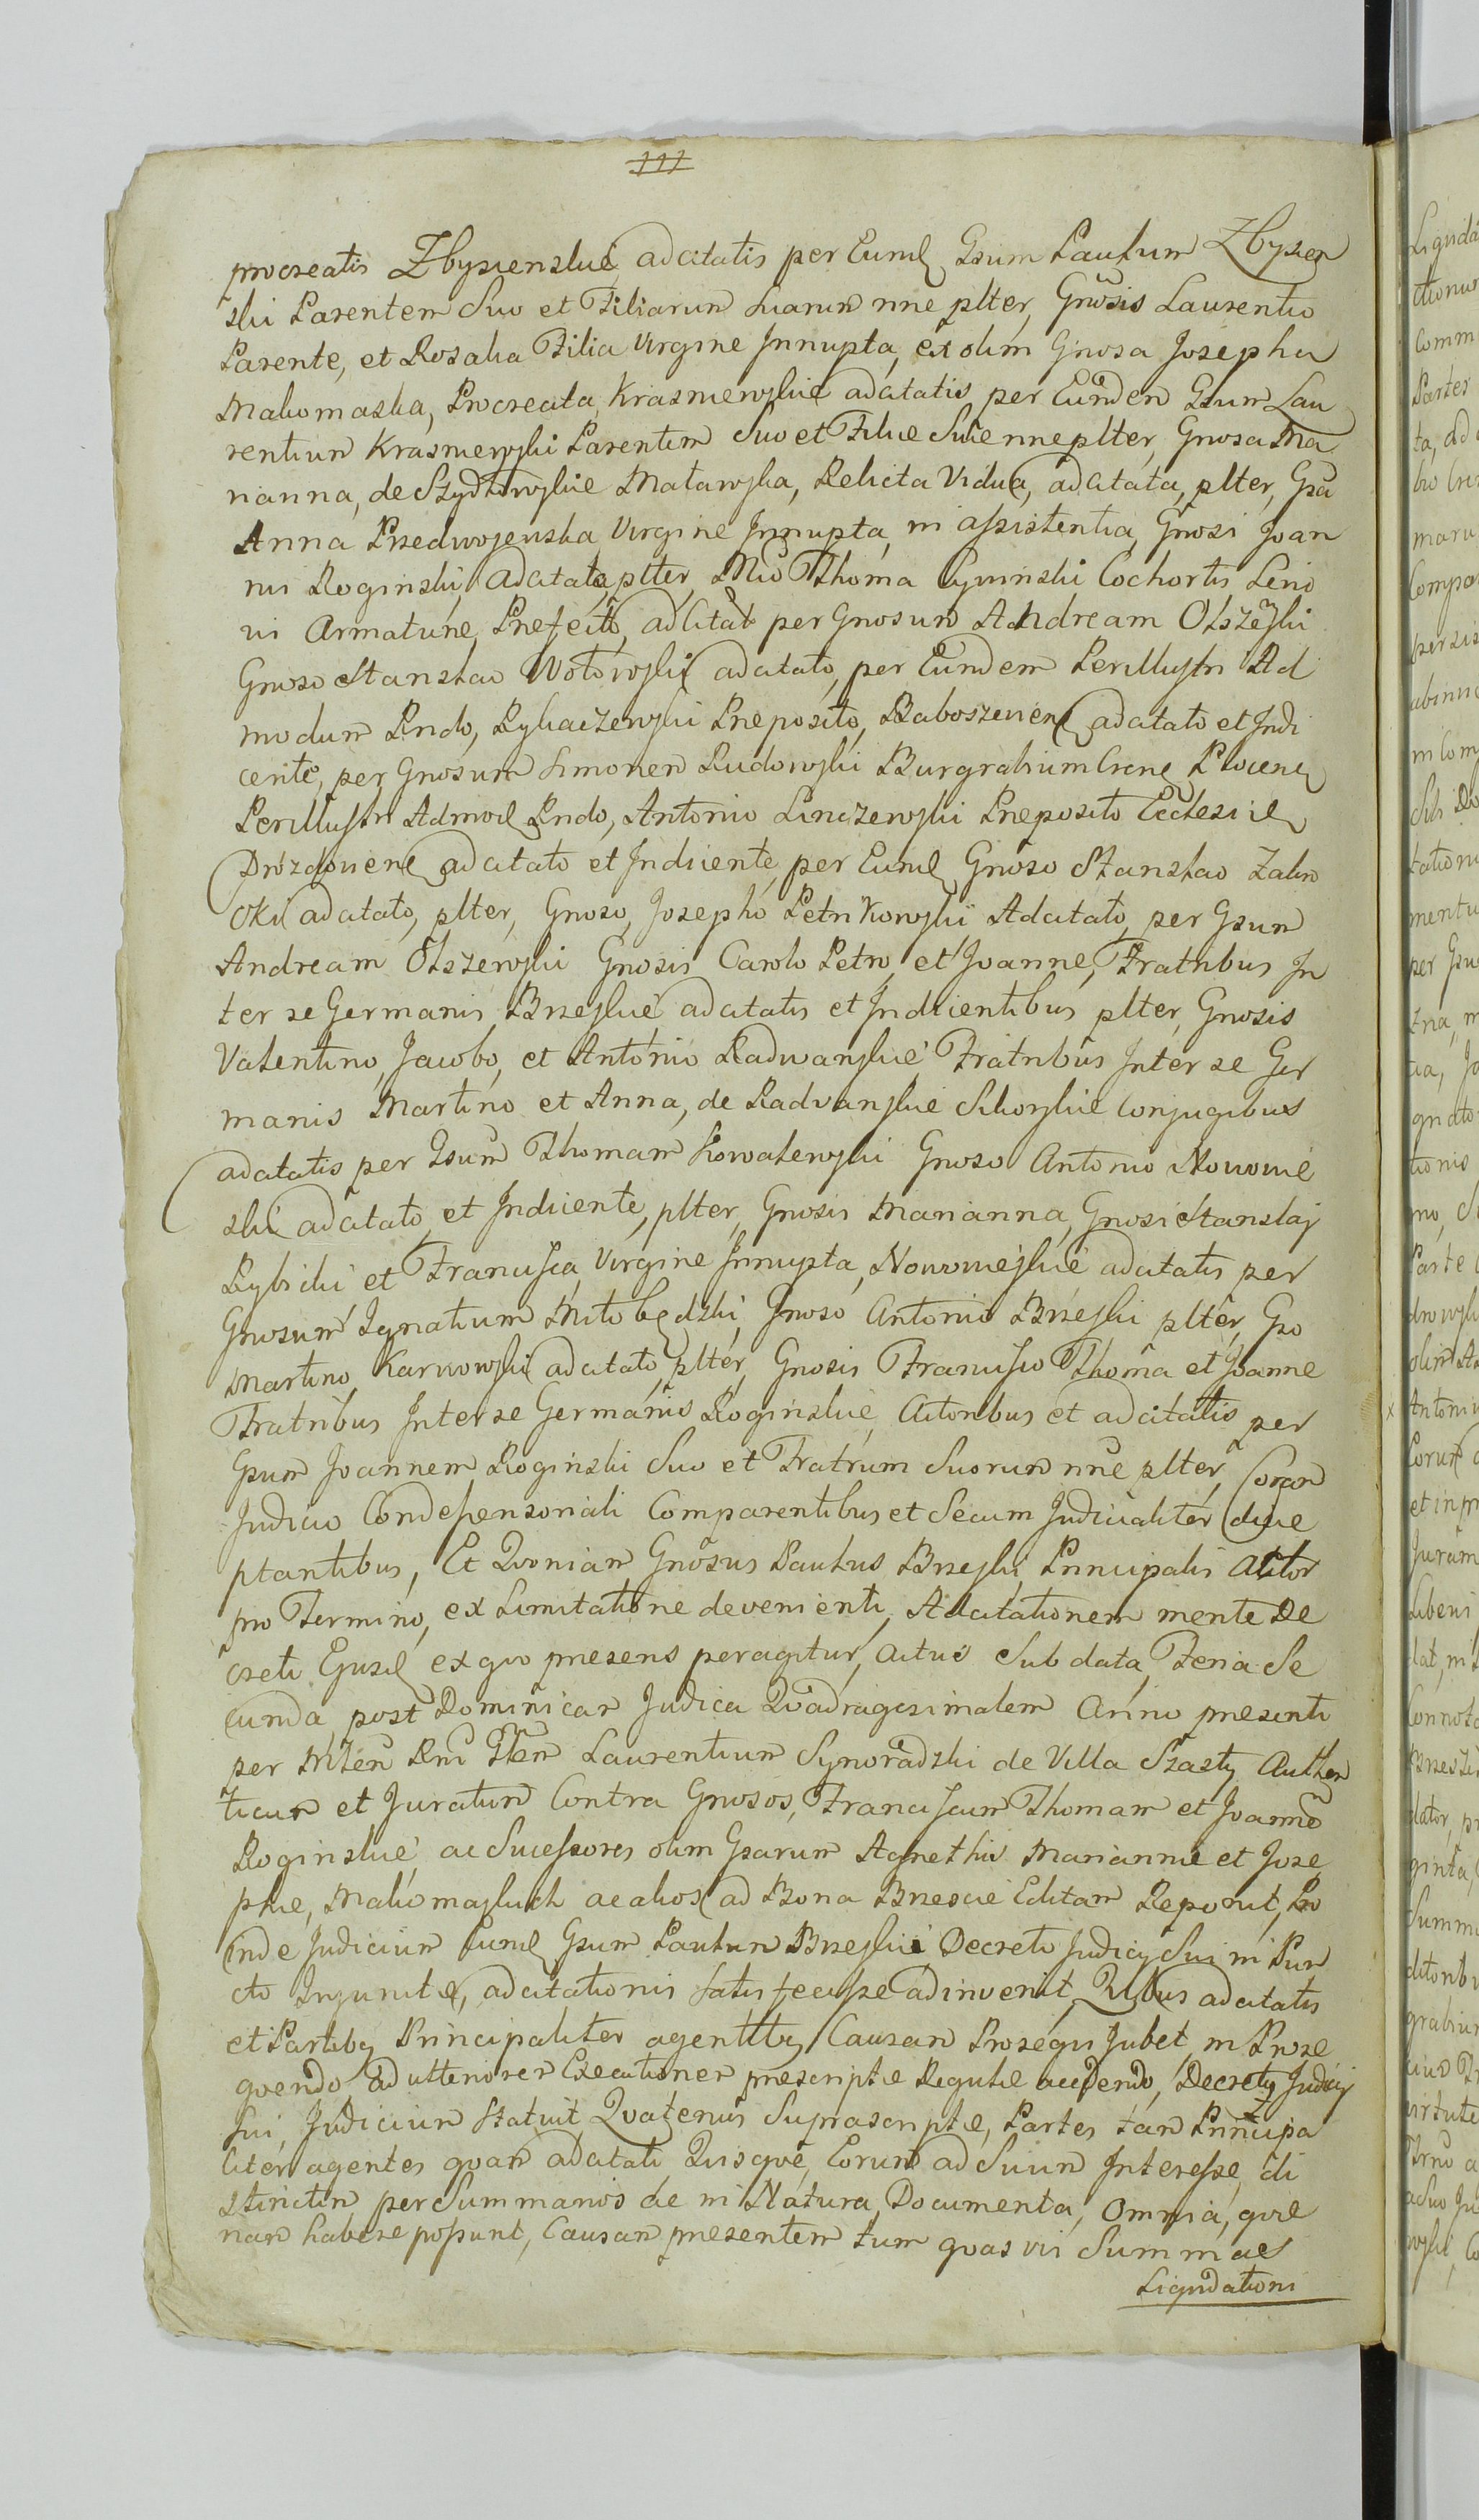 procreatis Zbysienskie adcitatis per Eund Gsum Paulum Zbysien
ski Parentem Suo et Filiarum suarum nne plter, Gnosis Laurentio
Parente, et Rosalia Filia Virgine Innupta, ex olim Gnosa Josepha
Makomaska, Procreata Krasniewskie adcitatis per Eunden Gsum Lau
rentium Krasniewski Parentem Suo et Filie Sue nne plter, Gnosa Ma
rianna, de Szydłowskie Małowska, Relicta Vidua, adcitata, plter, Gsa
Anna Przedwojewska Virgine Innupta in assistentia, Gnosi Joan
nis Roginski, adcitata, plter, Mco Thoma Cyminski Cochortis Levio
ris Armature, Prefecto, adcitat per Gnosum Andream Olszewski
Gnoso Stanislao Wołowski adcitato, per Eundem Perillustri Ad
modum Rndo, Rykaczewski Preposito, Baboszevien adcitato et Indu
cente, per Gnosum Simonem Rudowski Burgrabium Crens Plocens
Perillustri Admod Rndo, Antonio Linczewski Preposito Ecclesie
Drozdoviens adcitato et Inducente, per Eund Gnoso Stanislao Zakro
cki adcitato, plter, Gnoso, Josepho Petrikowski Adcitato, per Gsum
Andream Olszewski Gnosis Carolo Petro et Joanne, Fratribus In
ter se Germanis, Brzeskie adcitatis et Inducentibus plter, Gnosis
Valentino, Jacobo, et Antonio Radwanskie Fratribus Inter se Ger
manis Martino et Anna, de Radvanskie Sikorskie Conjugibus
adcitatis per Gsum Thomam Kowalewski Gnoso Antonio Nowowie
ski adcitato, et Inducente, plter, Gnosis Marianna, Gnosi Stanislaj
Rybicki et Francisca Virgine Innupta, Nowowiejskie adcitatis per
Gnosum Ignatium Miłobędzki, Gnoso Antonio Brzeski plter, Gso
Martino Karwowski adcitato, plter, Gnosis Francisco Thoma et Joanne
Fratribus Inter se Germanis Roginskie, Actoribus et adcitatis per
Gsum Joannem Roginski Suo et Fratrum Suorum nne plter, Coram
Judicio Condesensoriali Comparentibus et Secum Judicialiter disce
ptantibus, Et Qvoniam Gnosus Paulus Brzeski Principalis Actor
pro Termino, ex Limitatione devenienti, Adcitationem mente De
creti Ejusd ex qvo presens peragitur, Actus Sub data Feria Se
cunda post Dominicam Judica Qvadragesimalem Anno presenti
per Mlem Rni Glem Laurentium Synoradzki de Villa Szasty Authen
ticum et Juratum Contra Gnosos, Franciscum Thomam et Joannem
Roginskie, ac Sucessores olim Gsarum Agnethis Marianne et Jose
phe, Makomaskich ac alios ad Bona Brzescie Editam Reponit, Pro
inde Judicium Eund Gsum Paulum Brzeski Decreto Judicij Sui in Pun
cto Injuncte, adcitationis Satis fecisse adinvenit, Qvibus adcitatis
et Partibq Principaliter agentibq Causam Proseqvi Jubet, in Prose
qvendo ad ulteriorem Executionem prescripte Regule accedendo, Decretq Judicij
Sui, Judicium Statuit, Qvatenus Suprascripte, Partes tam Principa
liter agentes qvam adcitati, Qvisqve, Eorum ad Suum Interesse, di
stinctim per Summarios de in Natura Documenta, omnia, qve
nam habere possunt, Causam presentem tum qvasvis Summas
Liqvidationi